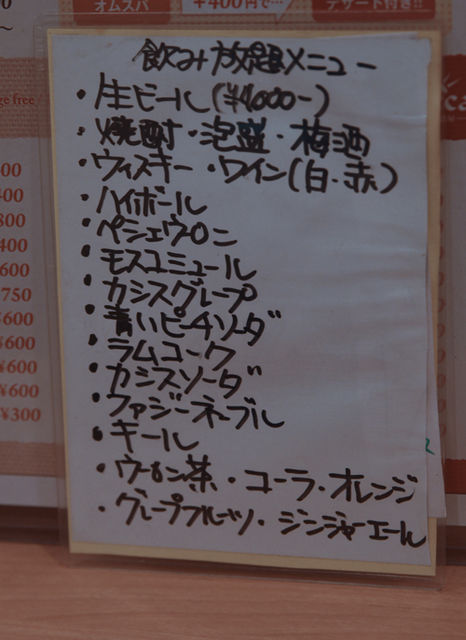 オムスパ
+400円で…
デザート付き!!
飲み放題メニュー
・生ビール(¥4000-)
・焼酎・泡盛・梅酒
・ウィスキー・ワイン(白・赤)
・ハイボール
・ペシェウーロン
・モスコミュール
・カシスグレープ
・青いピーチソーダ
・ラムコーク
・カシスソーダ
・ファジーネーブル
・キール
・ウーロン茶・コーラ・オレンジ
・グレープフルーツ・ジンジャーエール
ge free
400
800
400
600
750
¥600
¥600
¥600
¥600
¥300